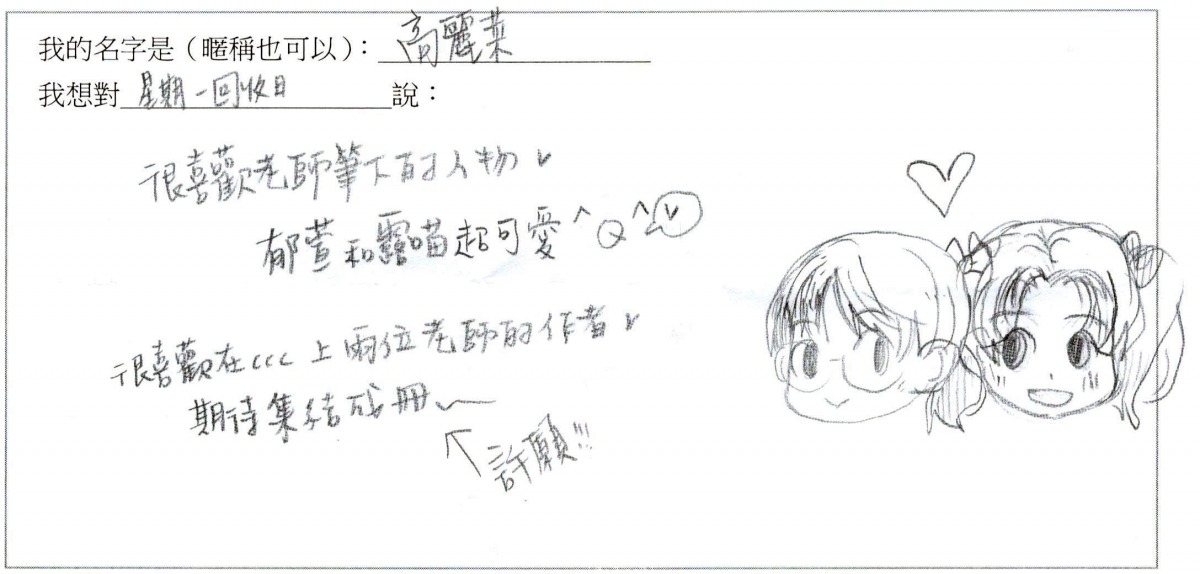 我的名字是（暱稱也可以）：高麗菜
我想對星期一回收日說：
很喜歡老師筆下的人物v
郁萱和露喵超可愛^Q^v
很喜歡在ccc上兩位老師的作者v
期待集結成冊~
許願!!!